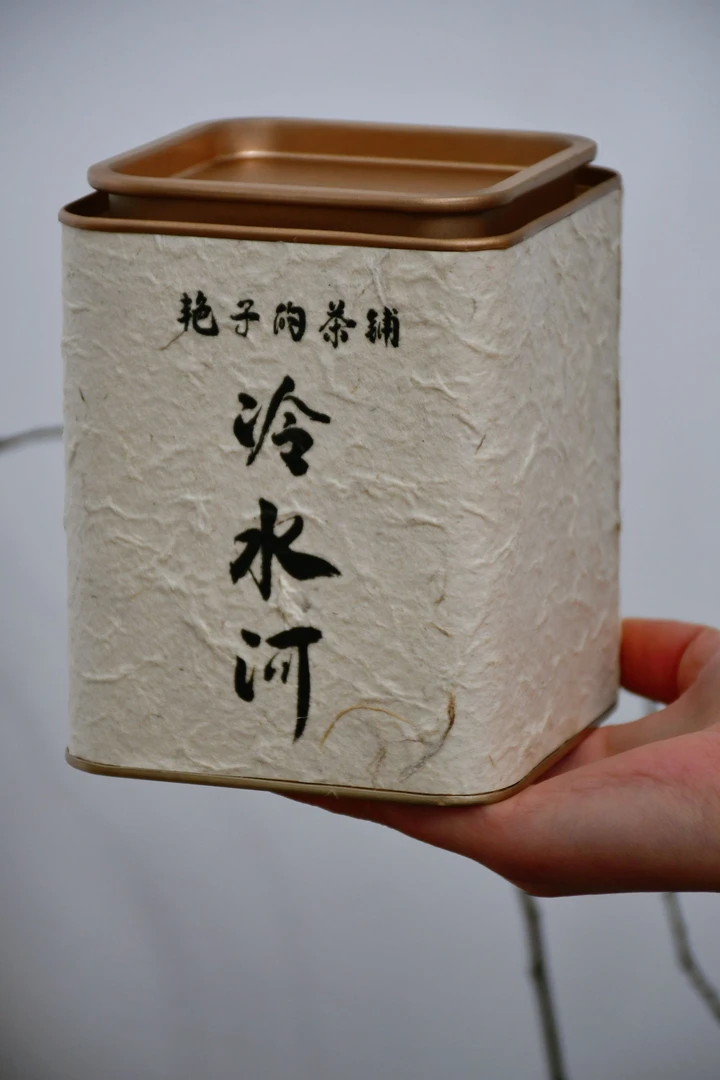 艳子的茶铺
冷水河